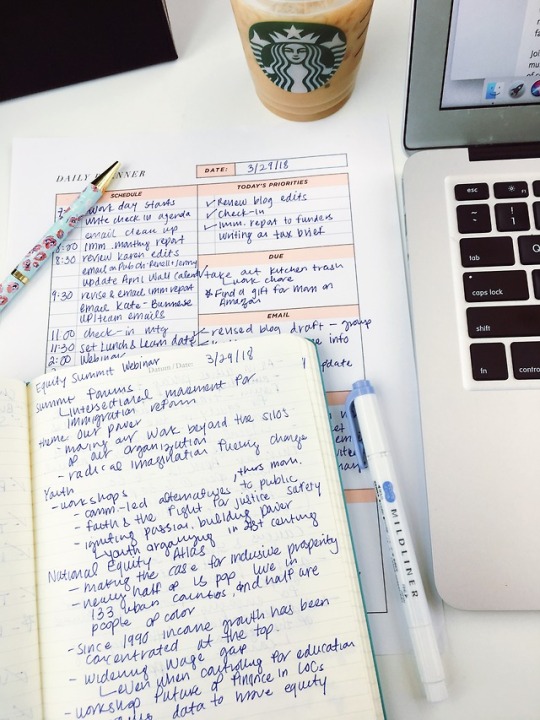 DAILY PLANNER
DATE: 3/29/18
SCHEDULE
work day starts
write check in agenda
email clean up
8:00 Imm. monthly report
8:30 review Karen edits
update April Wall Calendar
9:30 revise & email imm report
email Kate - Business
up team emails
11:00 check-in mtg
11:30 set Lunch & Learn date
2:00 Webinar
TODAY'S PRIORITIES
Renew blog edits
Check-in
Imm. report to funders
Writing as tax brief
DUE
take out kitchen trash
Lwork chore
Find a gift for Mom on
Amazon
EMAIL
revised blog draft - group
into
update
Equity Summit Webinar 3/29/18
Datum / Date:
Summit forums
intersectional movement for
immigration reform
theme: Our power
- moving our work beyond the silos
of our organization
- radical imagination fueling change
Youth
- workshops
- comm.-led alternatives to public safety
- faith & the fight for justice
- igniting passion, building power
youth organizing in 21st century
National Equity Atlas
- making the case for inclusive prosperity
- nearly half of US pop. live in
133 urban counties, and half are
people of color
- Since 1990 income growth has been
concentrated at the top
- widening wage gap
Leven when controlling for education
- workshop Future of Finance in LOCs
data to move equity
MILDLINER
esc
~
!
1
tab
Q
caps lock
A
shift
fn
control